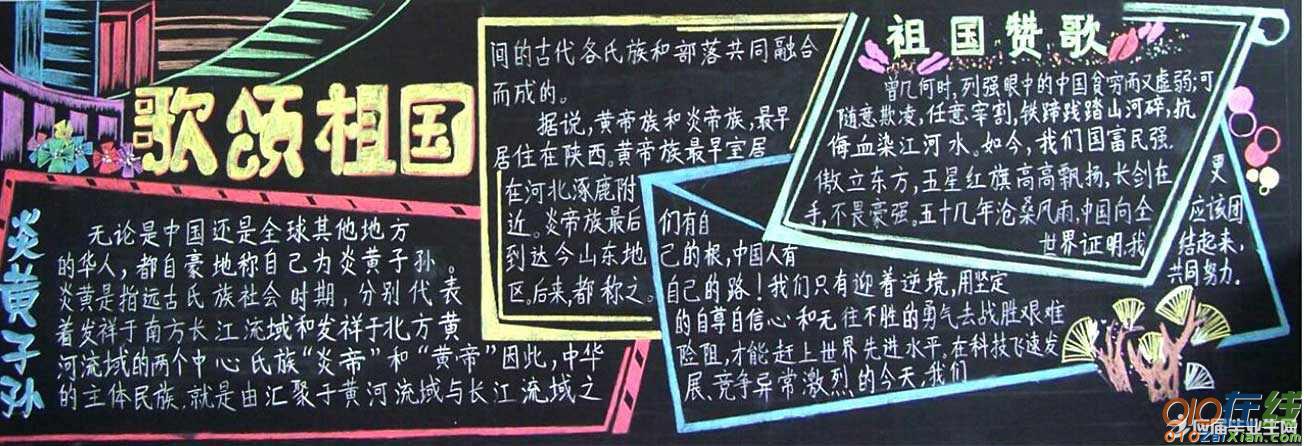 歌颂祖国
炎黄子孙
无论是中国还是全球其他地方
的华人，都自豪地称自己为炎黄子孙。
炎黄是指远古氏族社会时期，分别代表
着发祥于南方长江流域和发祥于北方黄
河流域的两个中心氏族“炎帝”和“黄帝”因此，中华
的主体民族，就是由汇聚于黄河流域与长江流域之
间的古代各氏族和部落共同融合
而成的。
据说，黄帝族和炎帝族，最早
居住在陕西。黄帝族最早室居
在河北涿鹿附
近。炎帝族最后
到达今山东地
区。后来，都称之。
祖国赞歌
曾几何时，列强眼中的中国贫穷而又虚弱；可
随意欺凌，任意宰割，铁蹄践踏山河碎，抗
侮血染江河水。如今，我们国富民强.
傲立东方，五星红旗高高飘扬，长剑在
手，不畏豪强。五十几年沧桑风雨，中国向全
世界证明，我
们有自
己的根，中国人有
自己的路！我们只有迎着逆境，用坚定
的自尊自信心和无往不胜的勇气去战胜艰难
险阻，才能赶上世界先进水平。在科技飞速发
展、竞争异常激烈的今天，我们
更
应该团
结起来，
共同努力.
010在线
应届毕业生网
010zaixian.com